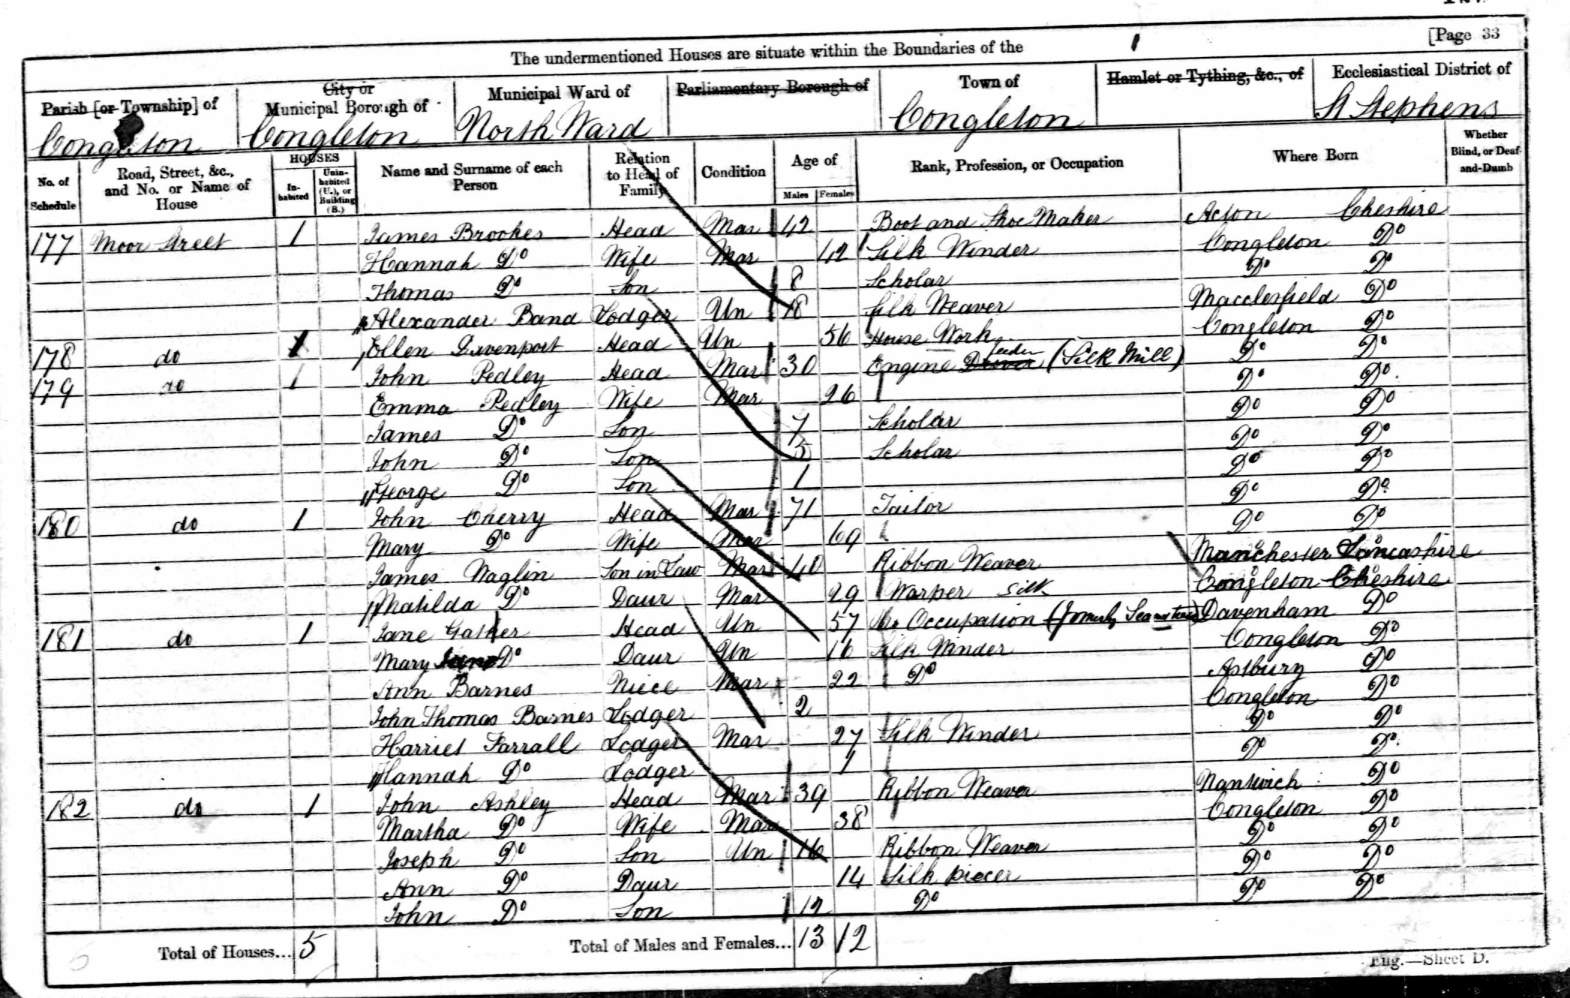 [Page 33
The undermentioned Houses are situate within the Boundaries of the
Parish [or Township] of City or Municipal Borough of Municipal Ward of Parliamentary Borough of Town of Hamlet or Tything, &c., of Ecclesiastical District of
Congleton Congleton North Ward Congleton St Stephens
No. of Schedule Road, Street, &c., and No. or Name of House HOUSES Inhabited Uninhabited (U.), or Building (B.) Name and Surname of each Person Relation to Head of Family Condition Age of Males Females Rank, Profession, or Occupation Where Born Whether Blind, or Deaf-and-Dumb
177 Moor Street 1 James Brookes Head Mar 42 Boot and Shoe Maker Acton Cheshire
Hannah Do Wife Mar 42 Silk Winder Congleton Do
Thomas Do Son 8 Scholar Do Do
Alexander Band Lodger Un 18 Silk Weaver Macclesfield Do
178 do 1 Ellen Davenport Head Un 56 House Work Congleton Do
179 do 1 John Pedley Head Mar 30 Engine Driver (Silk Mill) Do Do
Emma Pedley Wife Mar 26 Do Do
James Do Son 7 Scholar Do Do
John Do Son 5 Scholar Do Do
George Do Son 1 Do Do
180 do 1 John Cherry Head Mar 71 Tailor Do Do
Mary Do Wife Mar 69 Do Do
James Naglin Son in Law Mar 40 Ribbon Weaver Manchester Lancashire
Matilda Do Daur Mar 29 Warper Silk Congleton Cheshire
181 do 1 Jane Head Un 57 No Occupation (formerly Davenham Do
Mary Jane Do Daur Un 16 Silk Winder Congleton Do
Ann Barnes Niece Mar 22 Do Astbury Do
John Thomas Barnes Lodger 2 Congleton Do
Harriet Farrall Lodger Mar 27 Silk Winder Do Do
Hannah Do Lodger 1 Do Do
182 do 1 John Ashley Head Mar 39 Ribbon Weaver Nantwich Do
Martha Do Wife Mar 38 Congleton Do
Joseph Do Son Un 16 Ribbon Weaver Do Do
Ann Do Daur 14 Silk piecer Do Do
John Do Son 12 Do Do Do
Total of Houses... 5 Total of Males and Females... 13 12
Eng.—Sheet D.